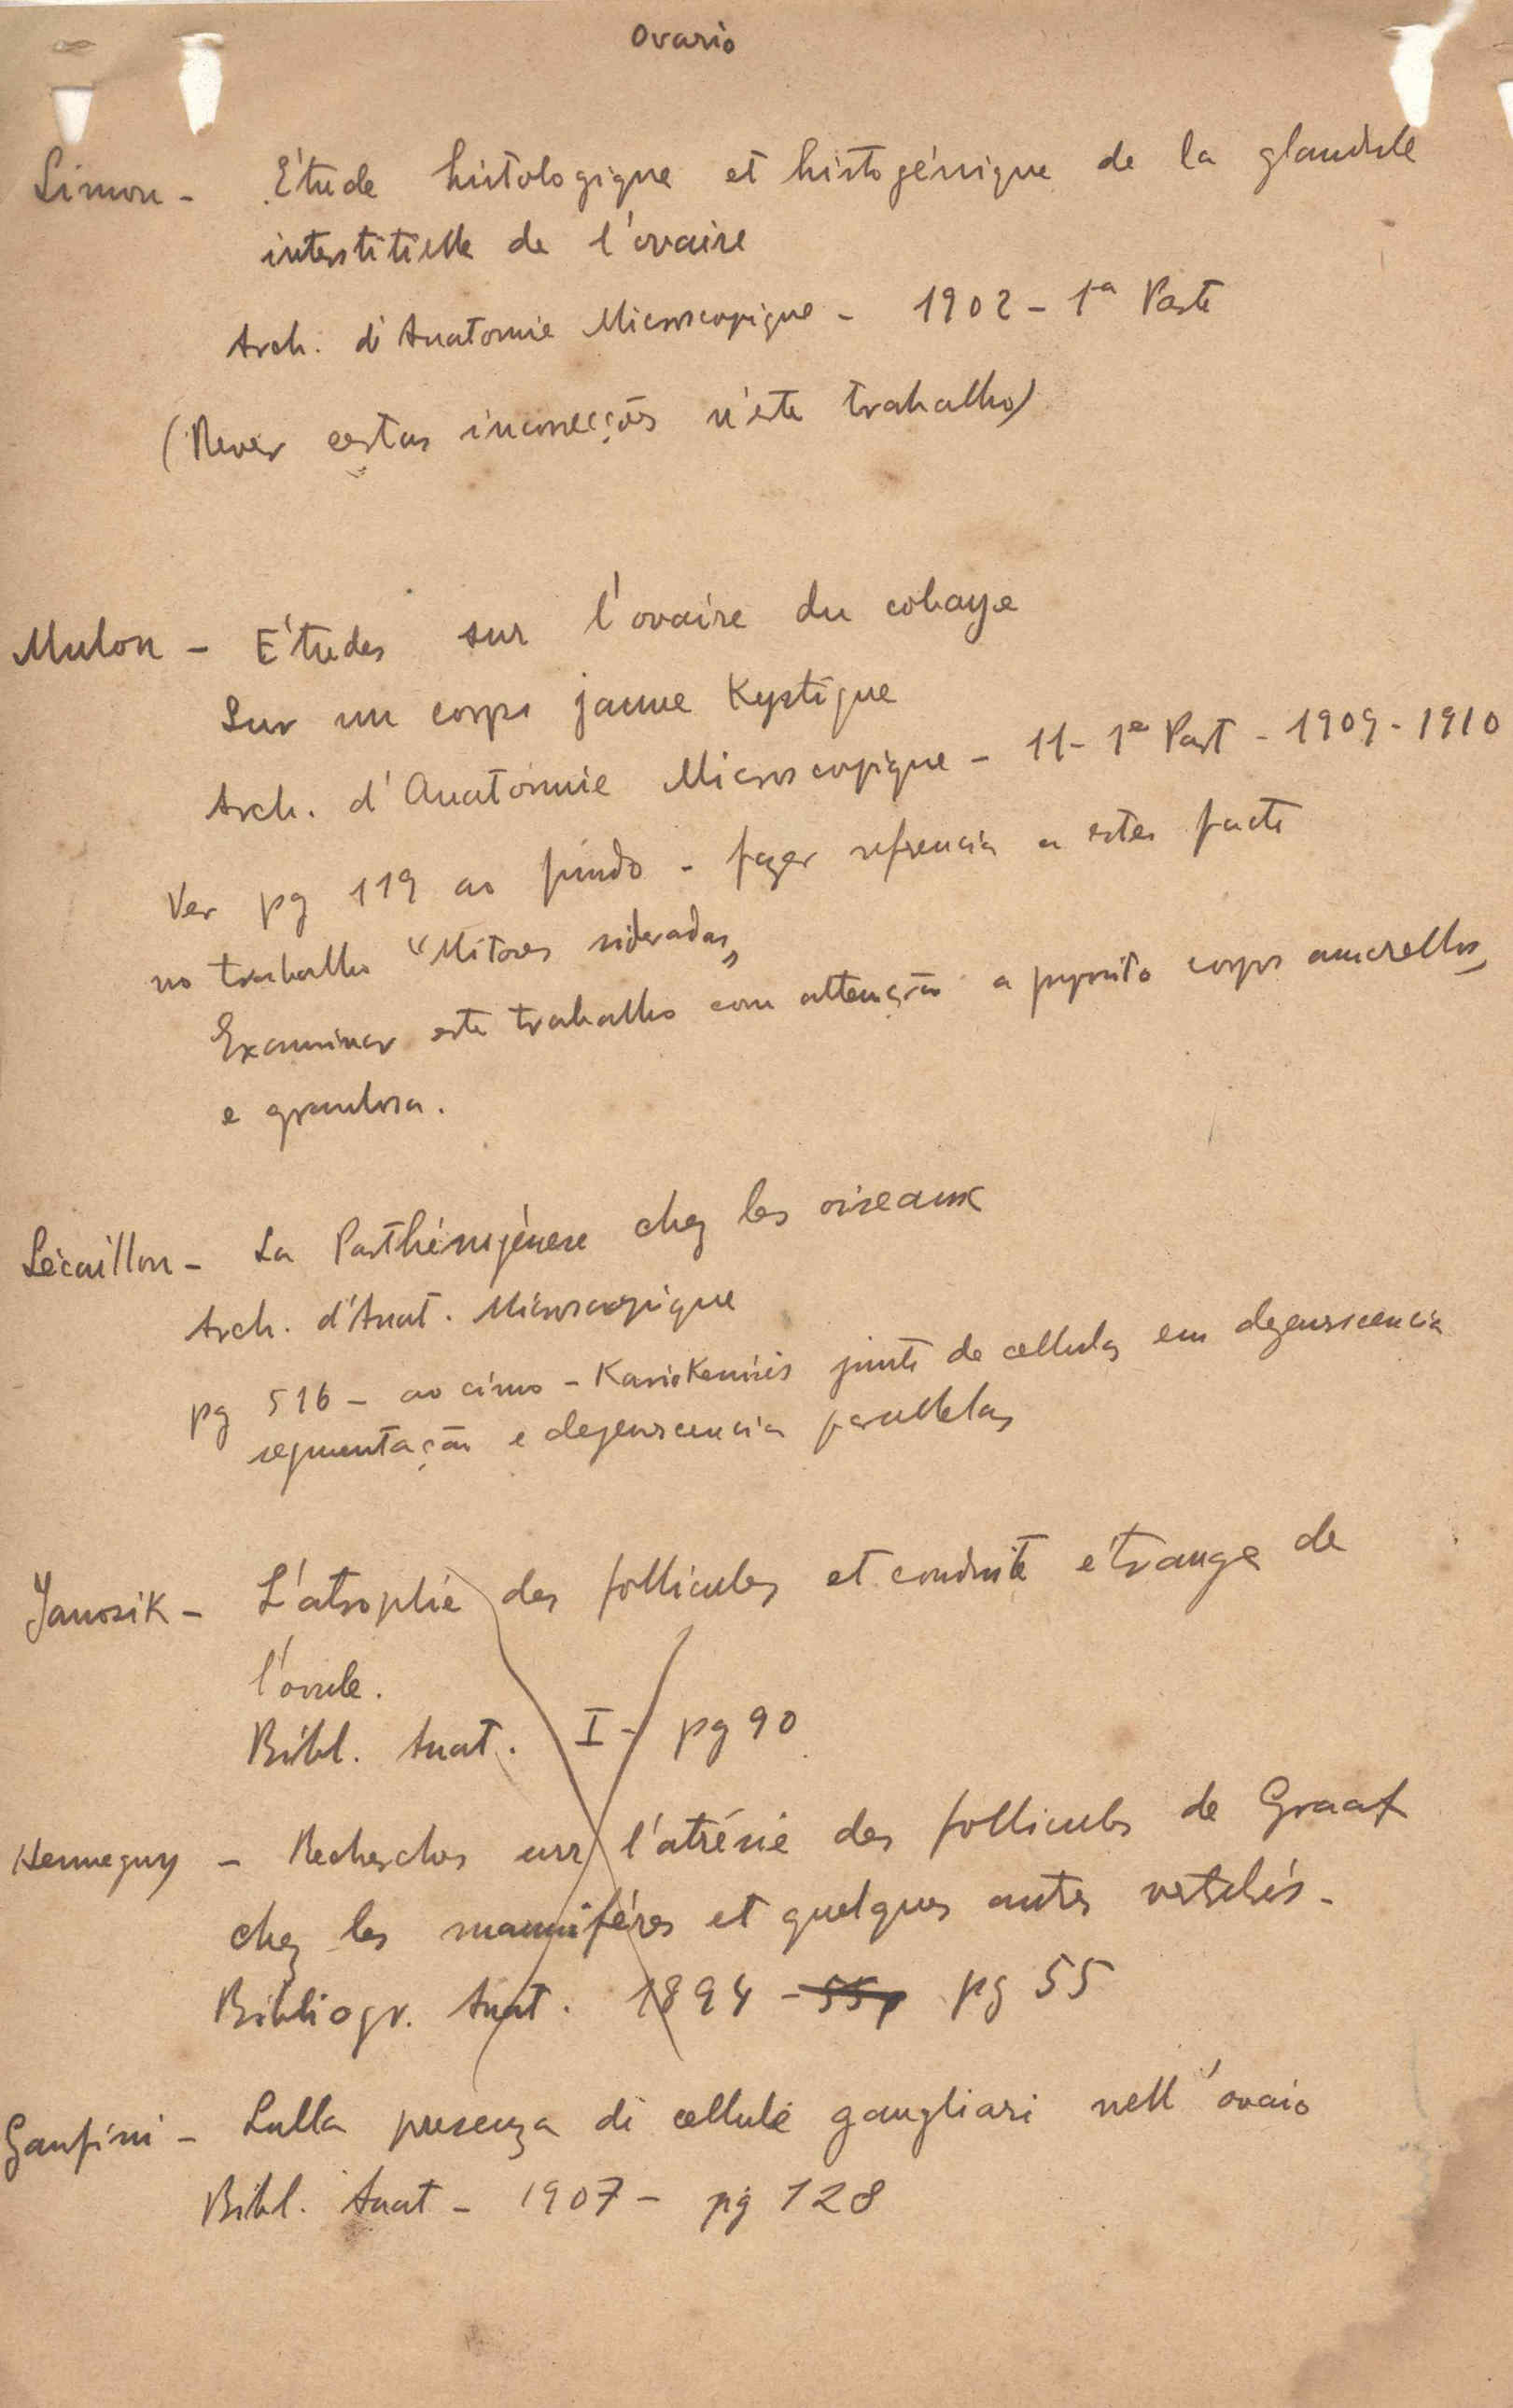 Ovario
Simon - Étude histologique et histogénique de la glandule
interstitielle de l'ovaire
Arch. d'Anatomie Microscopique - 1902 - 1ª Parte
(Rever certas incorrecções n'este trabalho)
Mulon - Études sur l'ovaire du cobaye
Sur un corps jaune Kystique
Arch. d'Anatomie Microscopique - 11 - 1e Part - 1909 - 1910
Ver pg 119 ao fundo - fazer refrencia a estes facto
no trabalho "Mitoses sideradas"
Examinar este trabalho com attenção a proposito corpos amarellos
e granulosa.
Lécaillon - La Parthénogénese chez les oiseaux
Arch. d'Anat. Microscopique
pg 516 - ao cimo - Kariokenésis junto de cellulas em degenerescencia
segmentação e degenerescencia parallelas
Janosik - L'atrophie des follicules et conduite étrange de
l'ovule.
Bibl. Anat. I - pg 90
Henneguy - Recherches sur l'atrésie des follicules de Graaf
chez les mammiféres et quelques autres vertebrés -
Bibliogr. Anat. 1894 - 55p pg 55
Ganfini - Sulla presenza di cellule gangliari nell'ovaio
Bibl. Anat - 1907 - pg 128